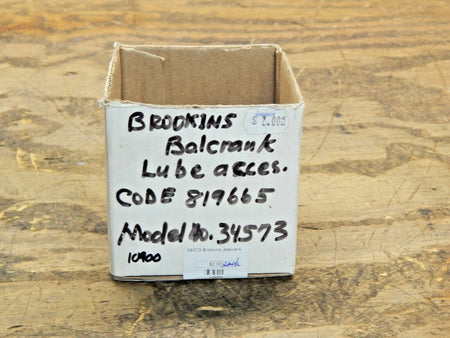 BROOKINS
Balcrank
Lube acces.
CODE 819665
Model No. 34573
10900
34573 Brookins Balcrank